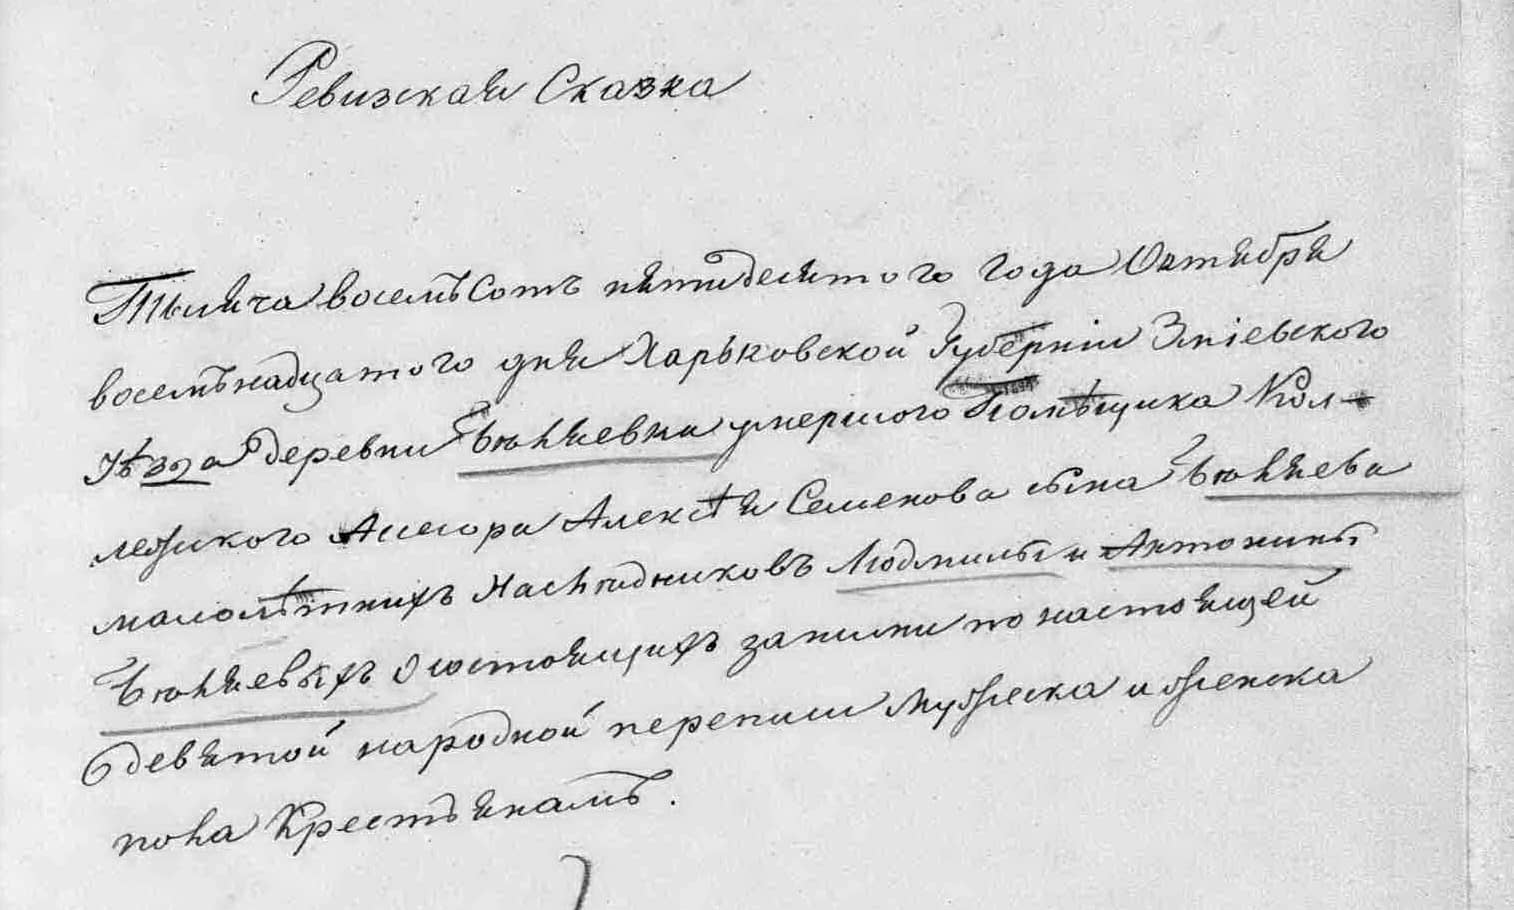 Ревизская Сказка
Тысяча восемьсотъ пятидесятого года Октября
восемьнадцатого дня Харьковской Губерніи Зміевского
Уѣзда деревни умершого Помѣщика Кол-
лежского Ассесора Алексѣя Семенова сына
малолѣтнихъ Наслѣдниковъ Людмилы и Антонины
состоящихъ запили по настоящей
девятой народной переписи Мужеска и женска
пола Крестьянамъ.